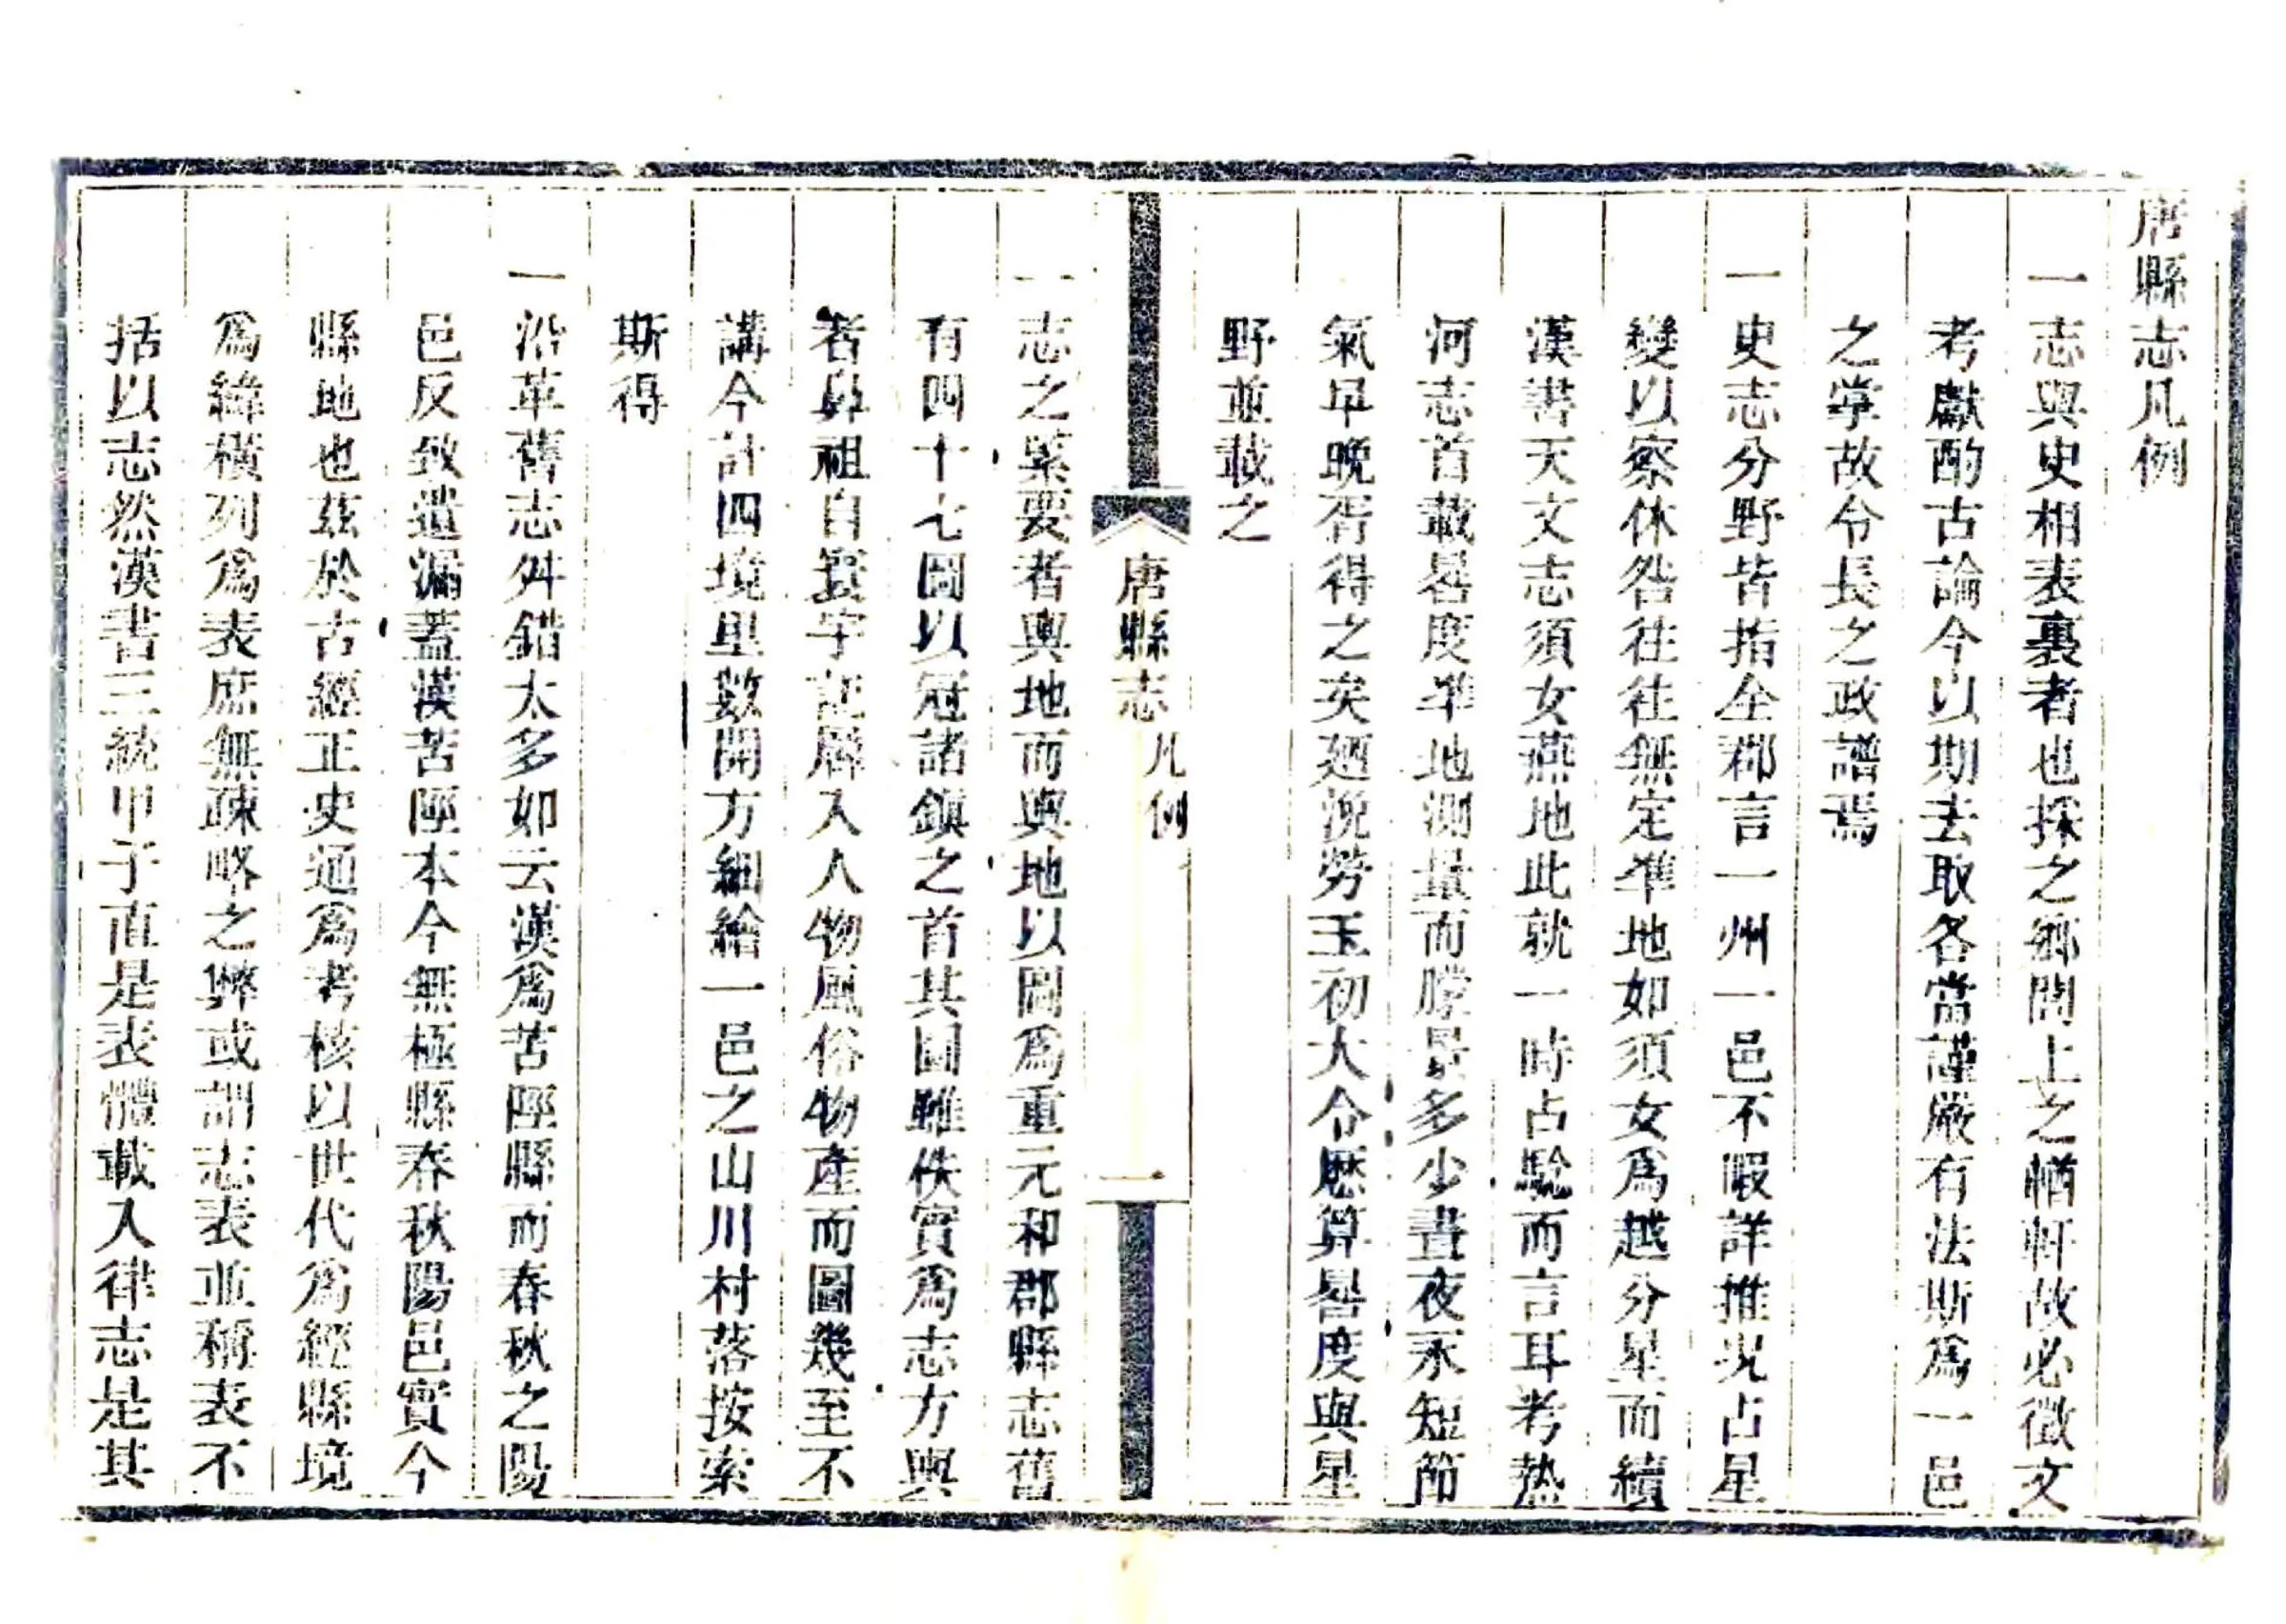 唐縣志凡例
一志與史相表裏者也採之鄉閭上之輶軒故必徵文
考獻酌古論今以期去取各當謹嚴有法斯爲一邑
之掌故令長之政譜焉
一史志分野皆指全郡言一州一邑不暇詳推况占星
變以察休咎往往無定準地如須女爲越分星而續
漢書天文志須女燕地此就一時占驗而言耳考熱
河志首載晷度準地測量而朦景多少晝夜永短節
氣早晚胥得之矣廼浼勞玉初大令厯算晷度與星
野並載之
唐縣志 凡例 一
一志之緊要者輿地而輿地以圖爲重元和郡縣志舊
有四十七圖以冠諸鎮之首其圖雖佚實爲志方輿
者鼻祖自寰宇記羼入人物風俗物產而圖幾至不
講今計四境里數開方細繪一邑之山川村落按索
斯得
一沿革舊志舛錯太多如云漢爲苦陘縣而春秋之陽
邑反致遺漏蓋漢苦陘本今無極縣春秋陽邑實今
縣地也茲於古經正史通爲考核以世代爲經縣境
爲緯橫列爲表庶無疎略之弊或謂志表並稱表不
括以志然漢書三統甲子直是表體載入律志是其